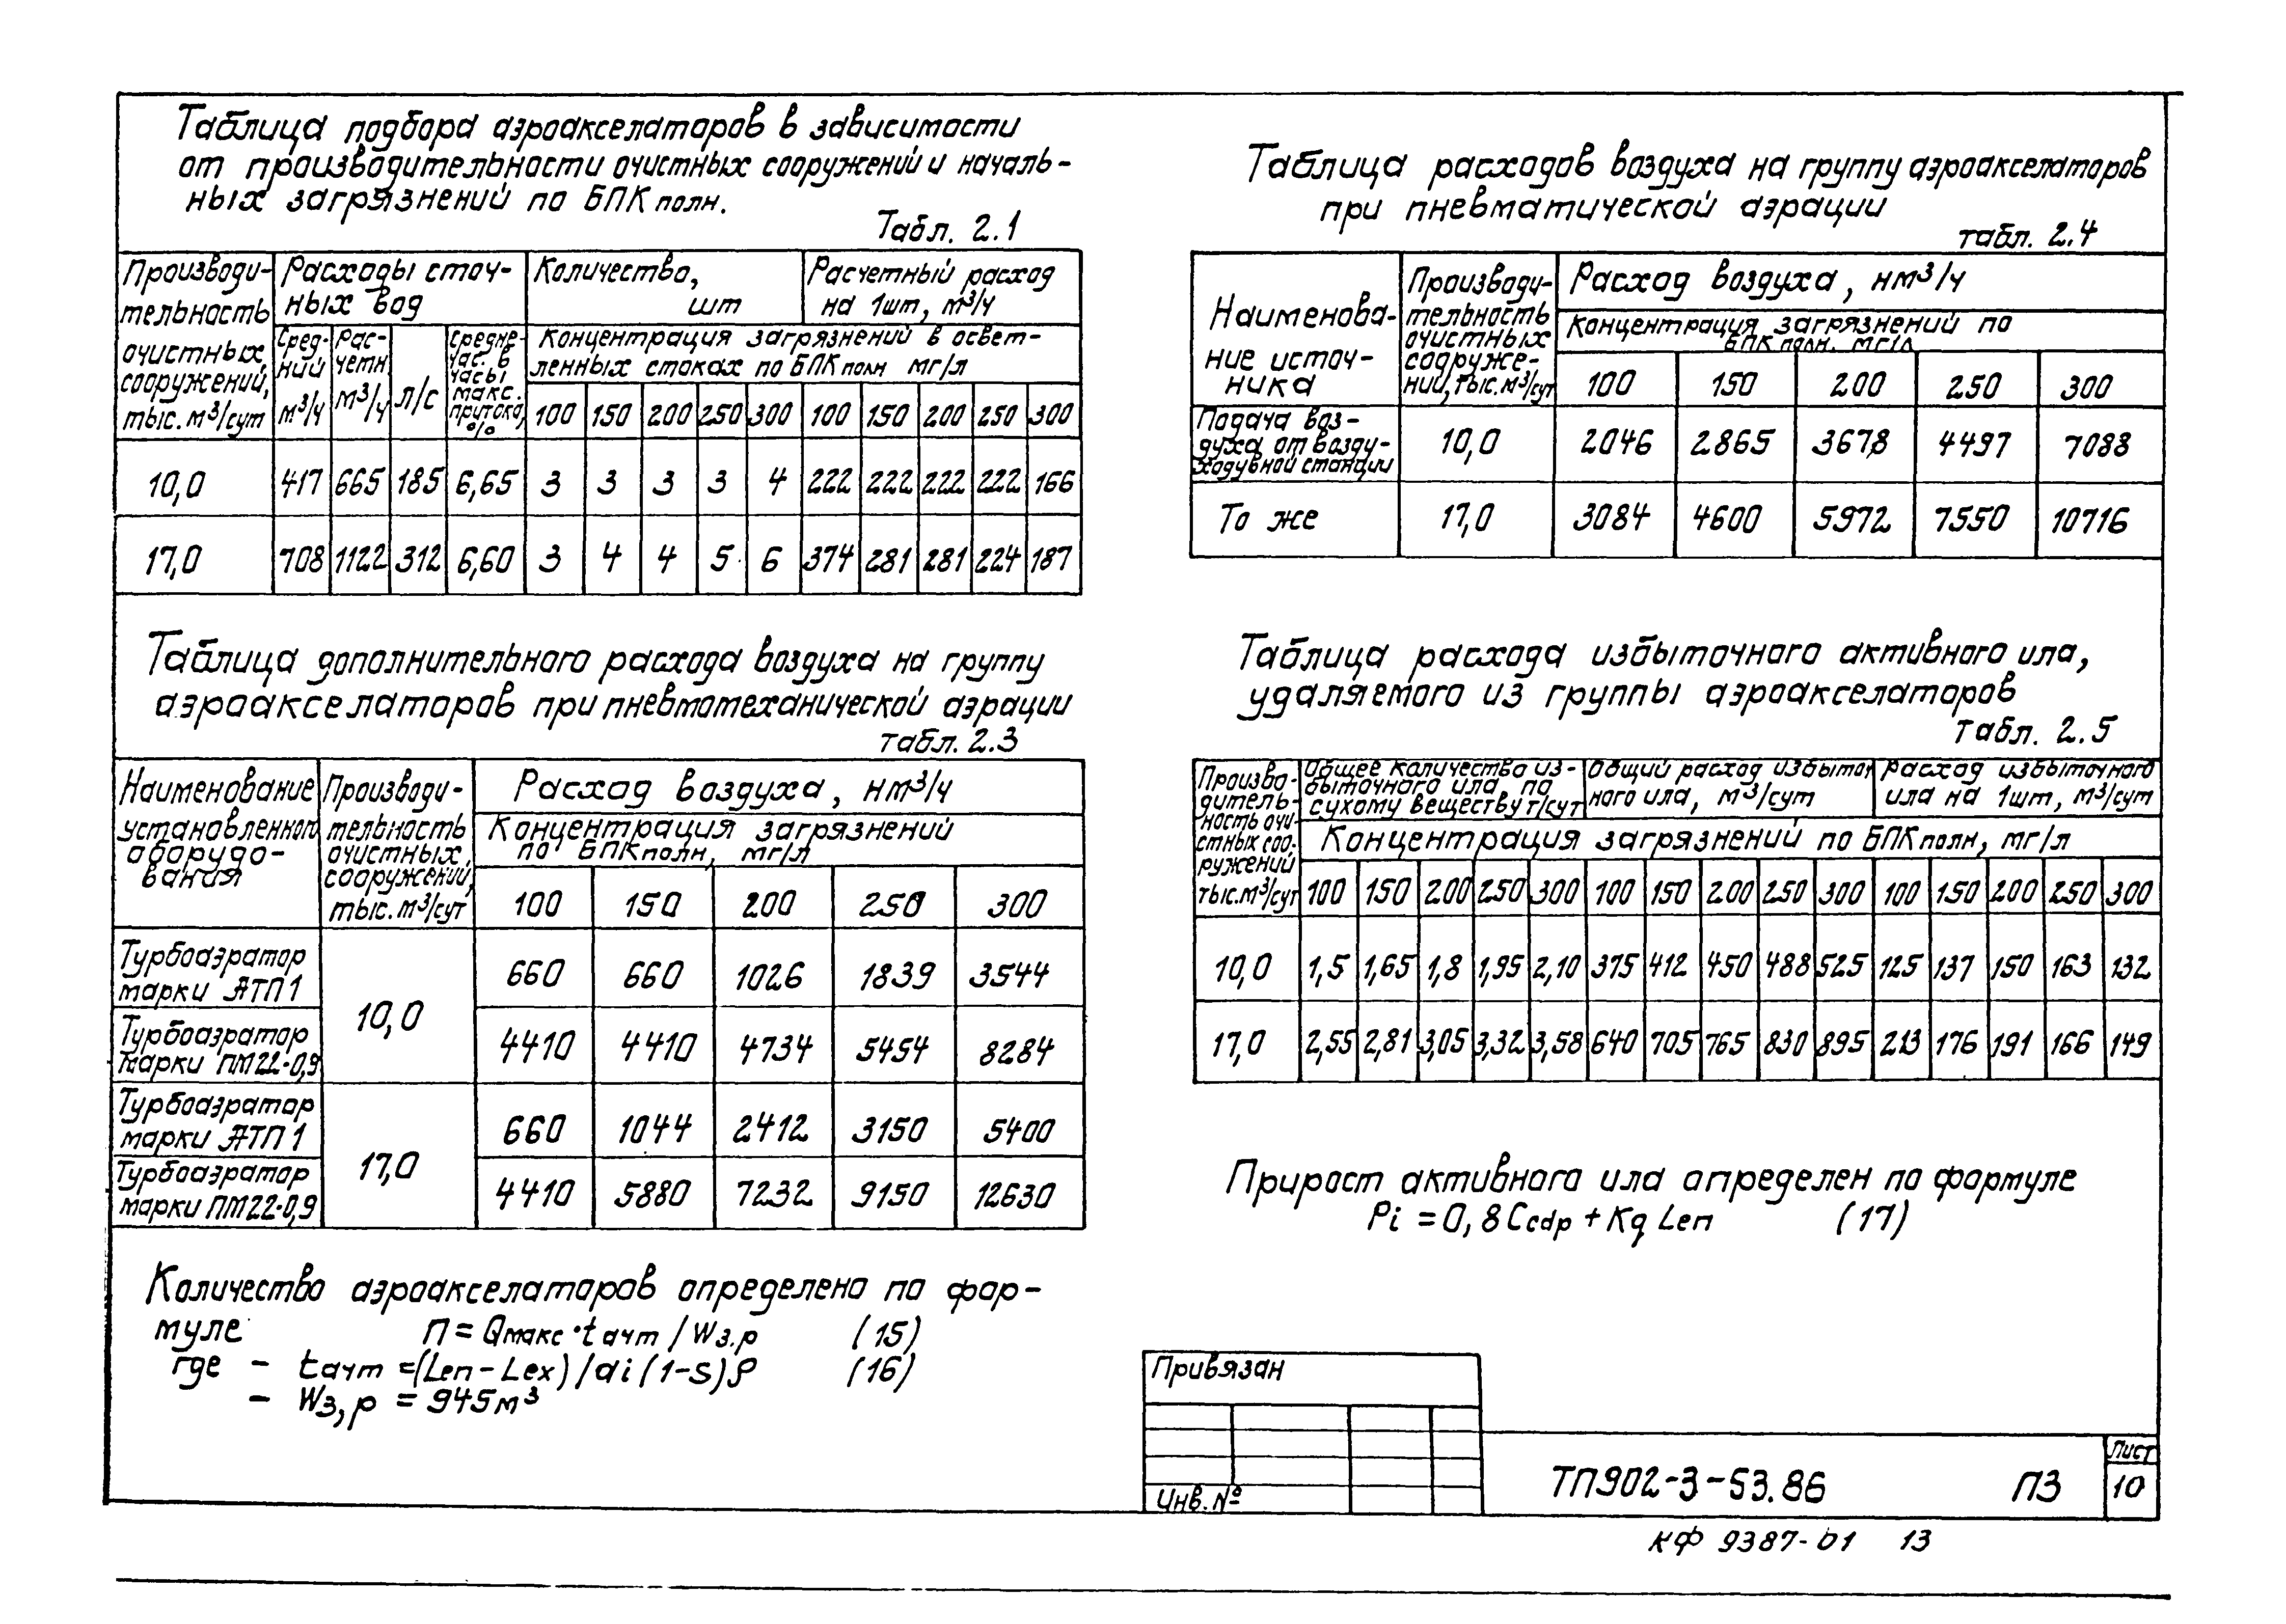 Таблица подбора аэроакселаторов в зависимости
от производительности очистных сооружений и началь-
ных загрязнений по БПК полн.
Табл. 2.1
Производи-
тельность
очистных
сооружений,
тыс. м³/сут
Расходы сточ-
ных вод
Количество,
шт
Расчетный расход
на 1шт, м³/ч
Сред-
ний
м³/ч
Рас-
четн
м³/ч
л/с
средне-
час. в
часы
макс.
притока,
%
Концентрация загрязнений в освет-
ленных стоках по БПК полн мг/л
100 150 200 250 300 100 150 200 250 300
10,0 417 665 185 6,65 3 3 3 3 4 222 222 222 222 166
17,0 708 1122 312 6,60 3 4 4 5 6 374 281 281 224 187
Таблица дополнительного расхода воздуха на группу
аэроакселаторов при пневмотеханической аэрации
табл. 2.3
Наименование
установленного
оборудо-
вания
Производи-
тельность
очистных
сооружений,
тыс. м³/сут
Расход воздуха, нм³/ч
Концентрация загрязнений
по БПКполн, мг/л
100 150 200 250 300
Турбоаэратор
марки АТП1
660 660 1026 1839 3544
10,0
Турбоаэратор
марки ПМ22-0,9
4410 4410 4734 5454 8284
Турбоаэратор
марки АТП1
660 1044 2412 3150 5400
17,0
Турбоаэратор
марки ПМ22-0,9
4410 5880 7232 9150 12630
Количество аэроакселаторов определено по фор-
муле n = Qмакс·tачт / Wз.р (15)
где - tачт =(Len-Lex)/ai(1-S)ρ (16)
- Wз,р = 945м³
Таблица расходов воздуха на группу аэроакселаторов
при пневматической аэрации
табл. 2.4
Наименова-
ние источ-
ника
Производи-
тельность
очистных
сооруже-
ний, тыс. м³/сут
Расход воздуха, нм³/ч
Концентрация загрязнений по
БПК полн. мг/л
100 150 200 250 300
Подача воз-
духа от возду-
ходувной станции
10,0 2046 2865 3678 4497 7088
То же 17,0 3084 4600 5972 7550 10716
Таблица расхода избыточного активного ила,
удаляемого из группы аэроакселаторов
табл. 2.5
Произво-
дитель-
ность очи-
стных соо-
ружений
тыс. м³/сут
Общее количество из-
быточного ила по
сухому веществу т/сут
Общий расход избыточ
ного ила, м³/сут
Расход избыточного
ила на 1шт, м³/сут
Концентрация загрязнений по БПКполн, мг/л
100 150 200 250 300 100 150 200 250 300 100 150 200 250 300
10,0 1,5 1,65 1,8 1,95 2,10 375 412 450 488 525 125 137 150 163 132
17,0 2,55 2,81 3,05 3,32 3,58 640 705 765 830 895 213 176 191 166 149
Прирост активного ила определен по формуле
Pi = 0,8Ccdp + Kg Len (17)
Привязан
Инв. №
ТП902-3-53.86 ПЗ
Лист
10
КФ 9387-01 13